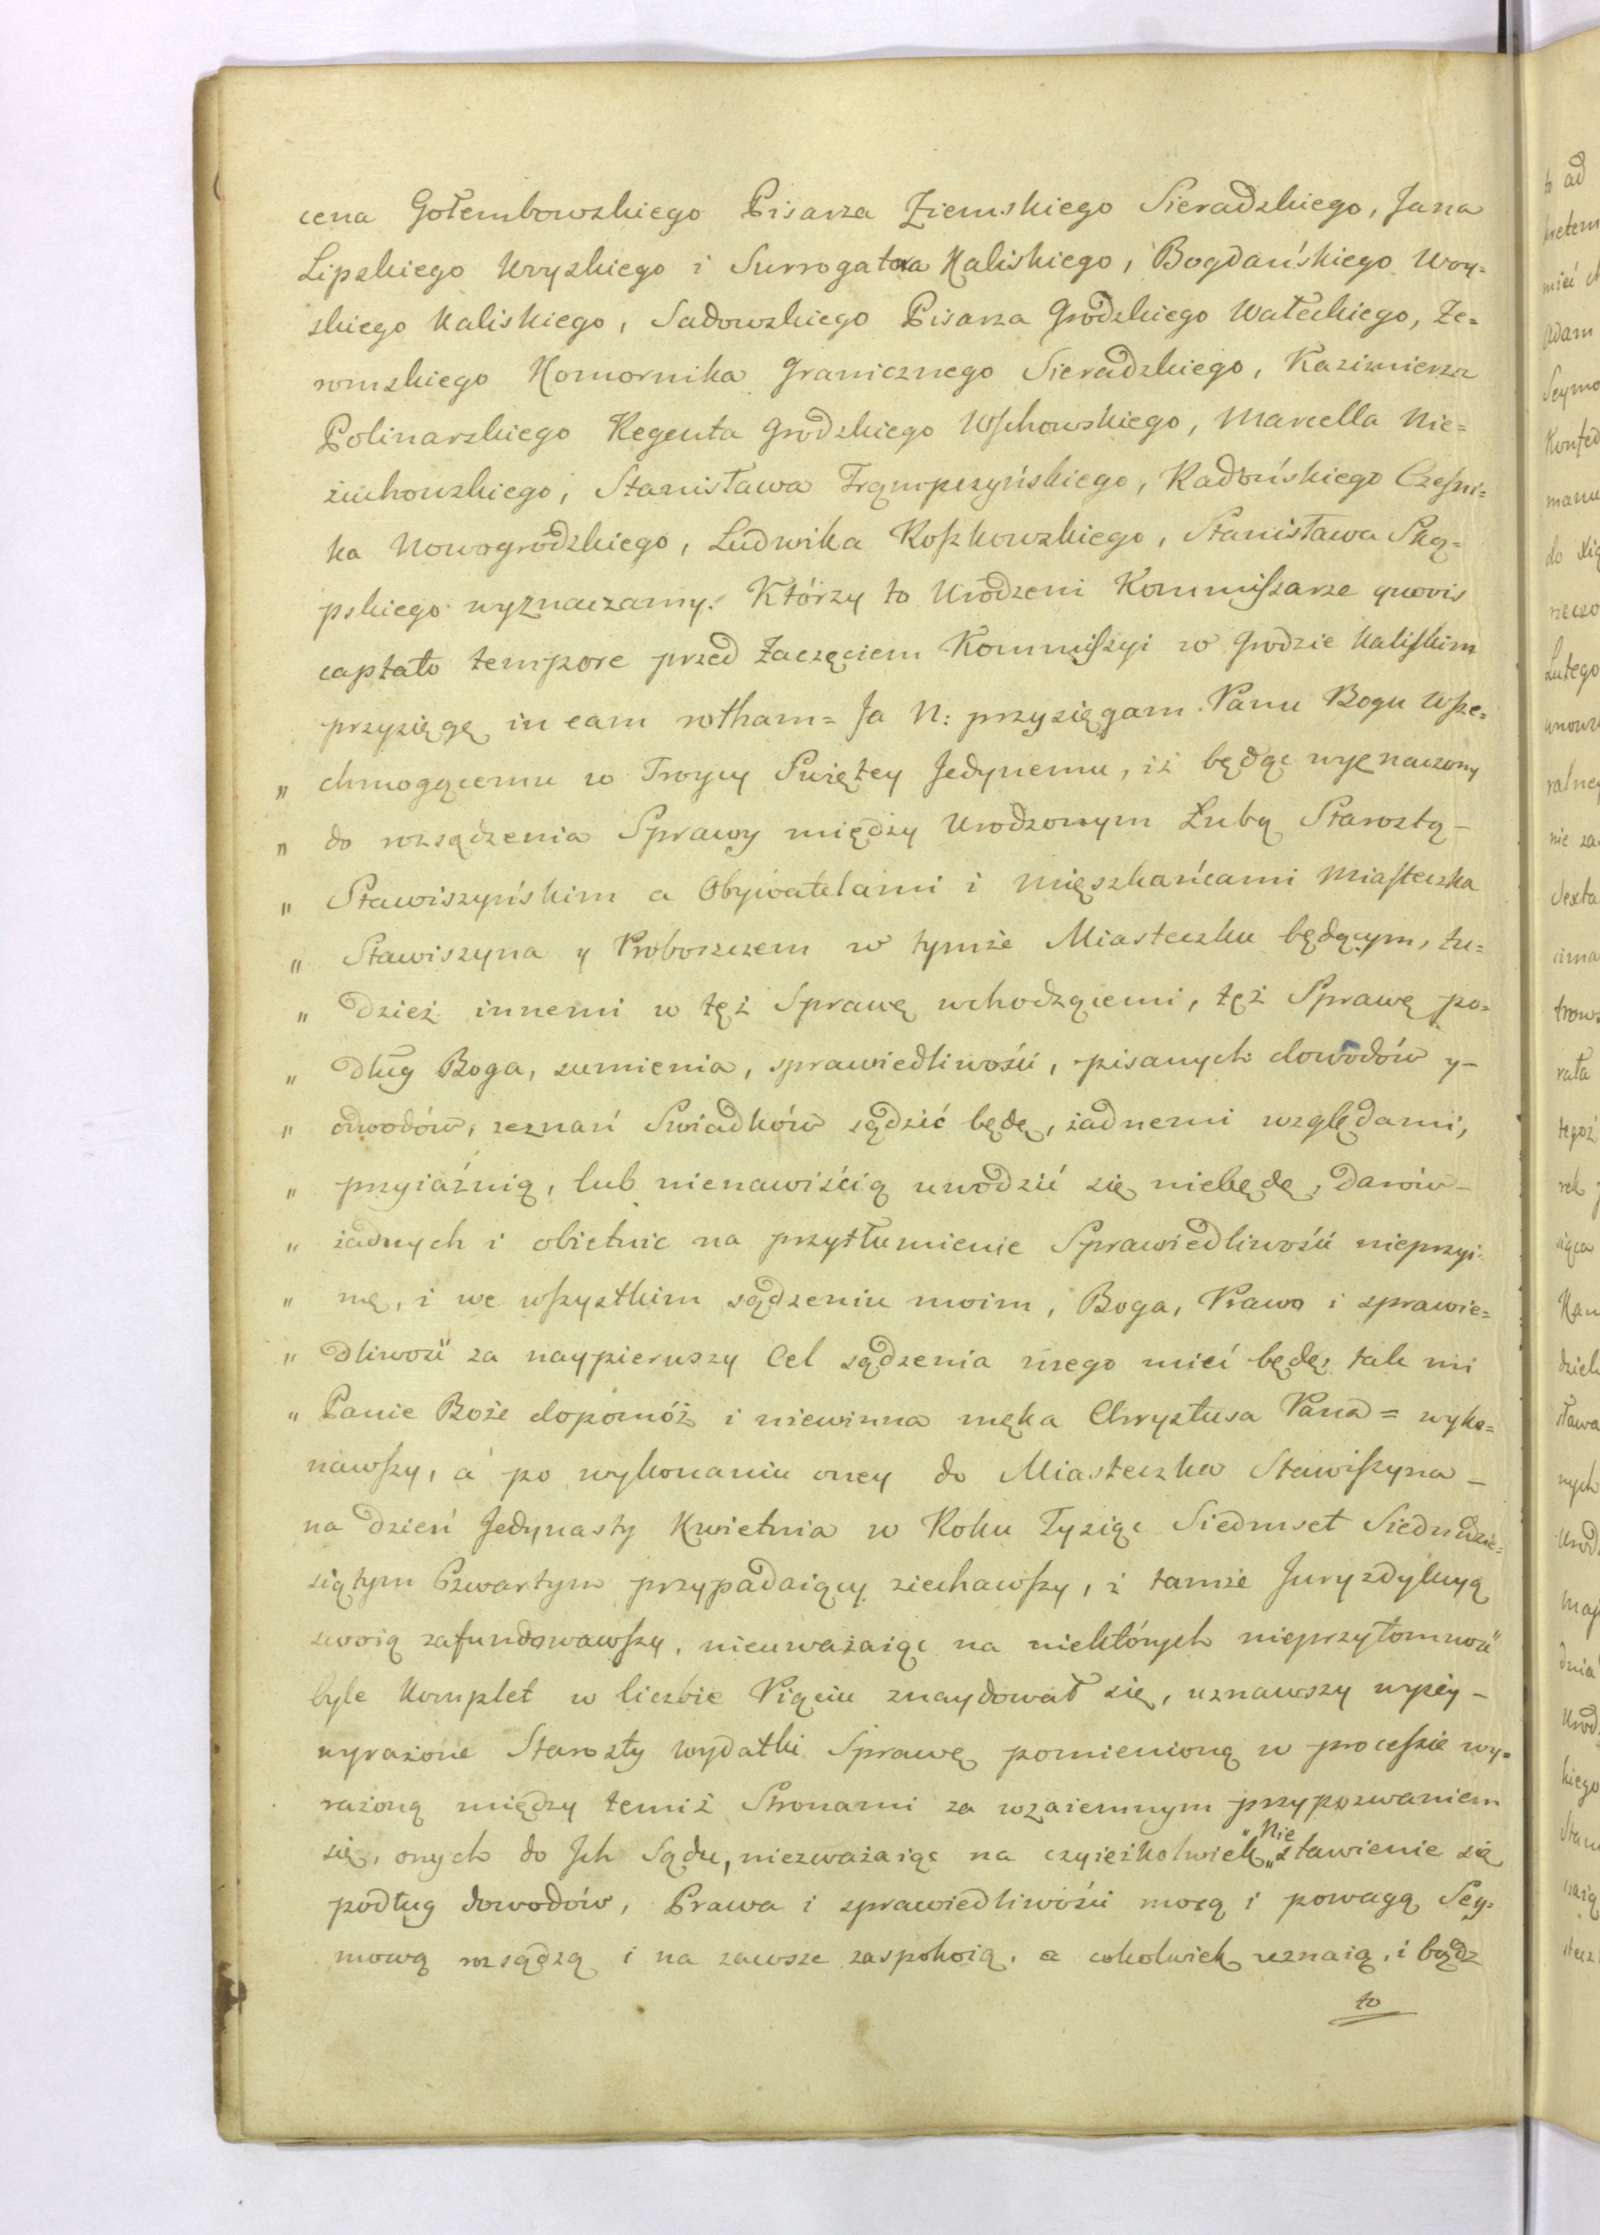 cena Gołembowskiego Pisarza Ziemskiego Sieradzkiego, Jana
Lipskiego Wryskiego i Surrogatora Kaliskiego, Bogdańskiego Woy=
skiego Kaliskiego, Sadowskiego Pisarza Grodzkiego Wałeckiego, Że=
romskiego Komornika Granicznego Sieradzkiego, Kazimierza
Polinarskiego Regenta Grodzkiego Wschowskiego, Marcella Nie=
żuchowskiego, Stanisława Trąmpczyńskiego, Radońskiego Cześni=
ka Nowogródzkiego, Ludwika Koszkowskiego, Stanisława Ską=
pskiego wyznaczamy. Którzy to Urodzeni Kommissarze quovis
captato tempore przed Zaczęciem Kommissyi w Grodzie Kaliskim
przysięgę in eam rotham= Ja N: przysięgam Panu Bogu Wsze=
„ chmogącemu w Troycy Świętey Jedynemu, iż będąc wyznaczony
„ do rozsądzenia Sprawy między Urodzonym Łubą Starostą –
„ Stawiszyńskim a Obywatelami i mięszkańcami Miasteczka
„ Stawiszyna y Proboszczem w tymże Miasteczku będącym, tu=
„ dzież innemi w tęż Sprawę wchodzącemi, tęż Sprawę po=
„ dług Boga, sumienia, sprawiedliwości, pisanych dowodów y –
„ odwodów, zeznań Swiadków sądzić będę, żadnemi względami,
„ przyiaźnią, lub nienawiścią uwodzić się niebędę, darów –
„ żadnych i obietnic na przytłumienie Sprawiedliwości nieprzyi=
„ mę, i we wszystkim sądzeniu moim, Boga, Prawo i sprawie=
„ dliwość za naypierwszy Cel sądzenia mego mieć będę, tak mi
„ Panie Boże dopomóż i niewinna męka Chrystusa Pana = wyko=
nawszy, a po wykonaniu oney do Miasteczka Stawiszyna –
na dzień Jedynasty Kwietnia w Roku Tysiąc Siedmset Siedmdzie=
siątym Czwartym przypadaiący ziechawszy, i tamże Juryzdykcyą
swoią zafundowawszy, nieuważaiąc na niektórych nieprzytomność
byle Komplet w liczbie Pięciu znaydował się, uznawszy wyżey –
wyrażone Starosty wydatki Sprawę pomienioną w processie wy=
rażoną między temiż Stronami za wzaiemnym przypozwaniem
się, onych do Ich Sądu, niezważaiąc na czyieżkolwiek „Nie„stawienie się
podług dowodów, Prawa i sprawiedliwości mocą i powagą Sey=
mową rozsądzą i na zawsze zaspokoią, a cokolwiek uznaią, i bądz
to